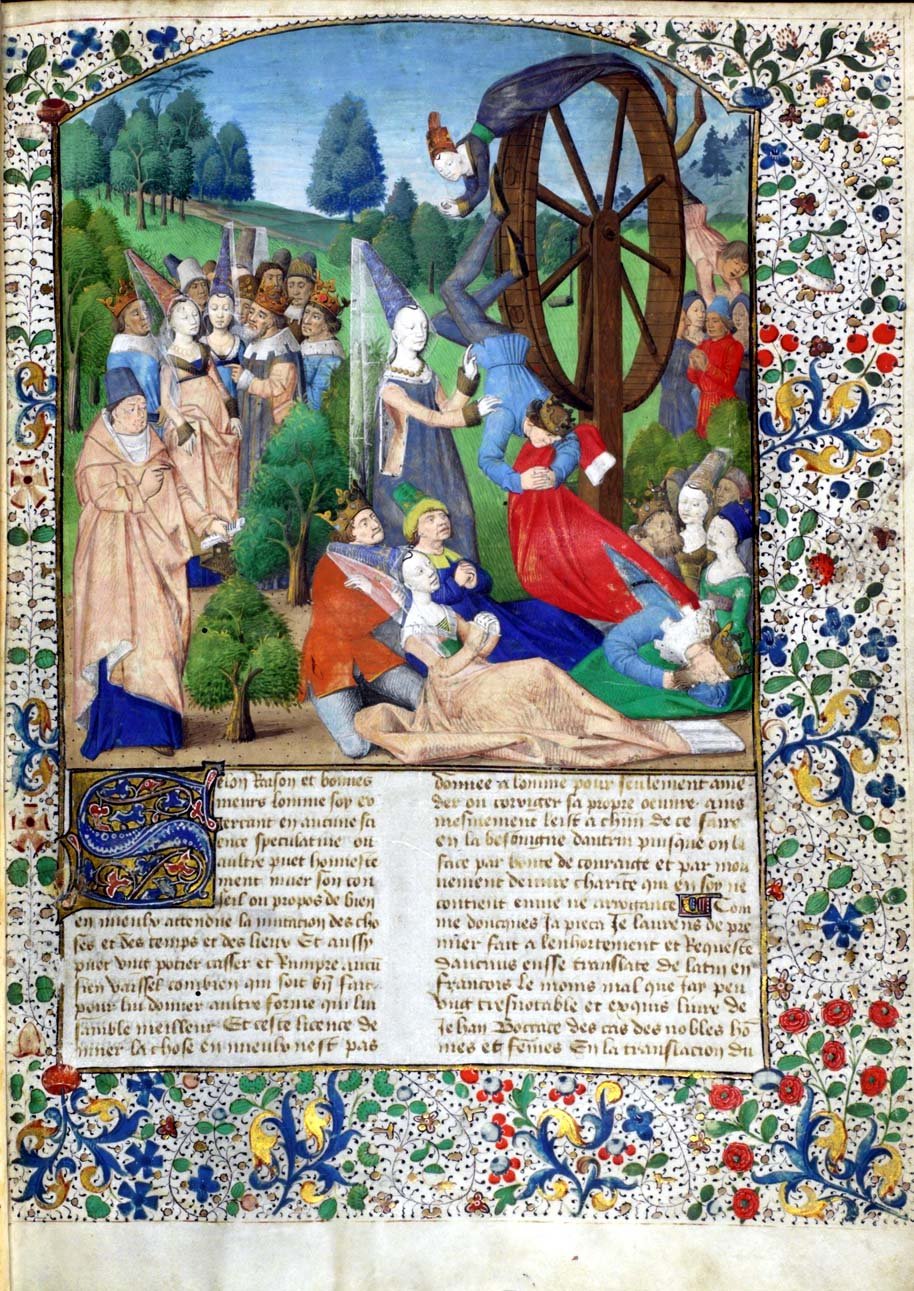 Selon Raison et bonnes
meurs lomme soy ex
ercant en aucune sci
ence speculative ou
aultre puet honneste
ment muer son con
seil ou propos de bien
en mieulx attendue la mutation des cho
ses et des temps et des lieux Et aussy
puet ung potier casser et Rumpre aucū
sien vaissel combien qui soit bn̄ fait
pour lui donner aultre forme qui lui
samble meilleur Et ceste licence de
muer la chose en mieulx nest pas
donnee a lomme pour seulement amē
der ou corriger sa propre oeuvre ains
mesmement leist a chūn de ce faire
en la besoingne daultrui puisque on la
face par bonte de couraige et par mou
vement de vraie charite qui en soy ne
contient envie ne arrogance Com
me doncques Ja pieca Je laurens de pre
mier fait a lenhortement et Requeste
daucuns eusse translate de latin en
francois le moins mal que iay peu
ung tresnotable et exquis livre de
Jehan Boccace des cas des nobles hō
mes et fem̄es En la translacion du